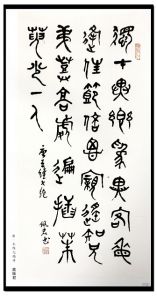 獨在異鄉為異客每
逢佳節倍思親遙知兄
弟登高處遍插茱
萸少一人